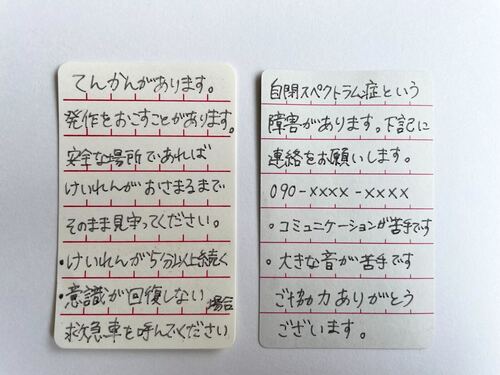 てんかんがあります。
発作をおこすことがあります。
安全な場所であれば
けいれんがおさまるまで
そのまま見守ってください。
・けいれんが5分以上続く
・意識が回復しない場合
救急車を呼んでください
自閉スペクトラム症という
障害があります。下記に
連絡をお願いします。
090-××××-××××
・コミュニケーションが苦手です
・大きな音が苦手です
ご協力ありがとう
ございます。